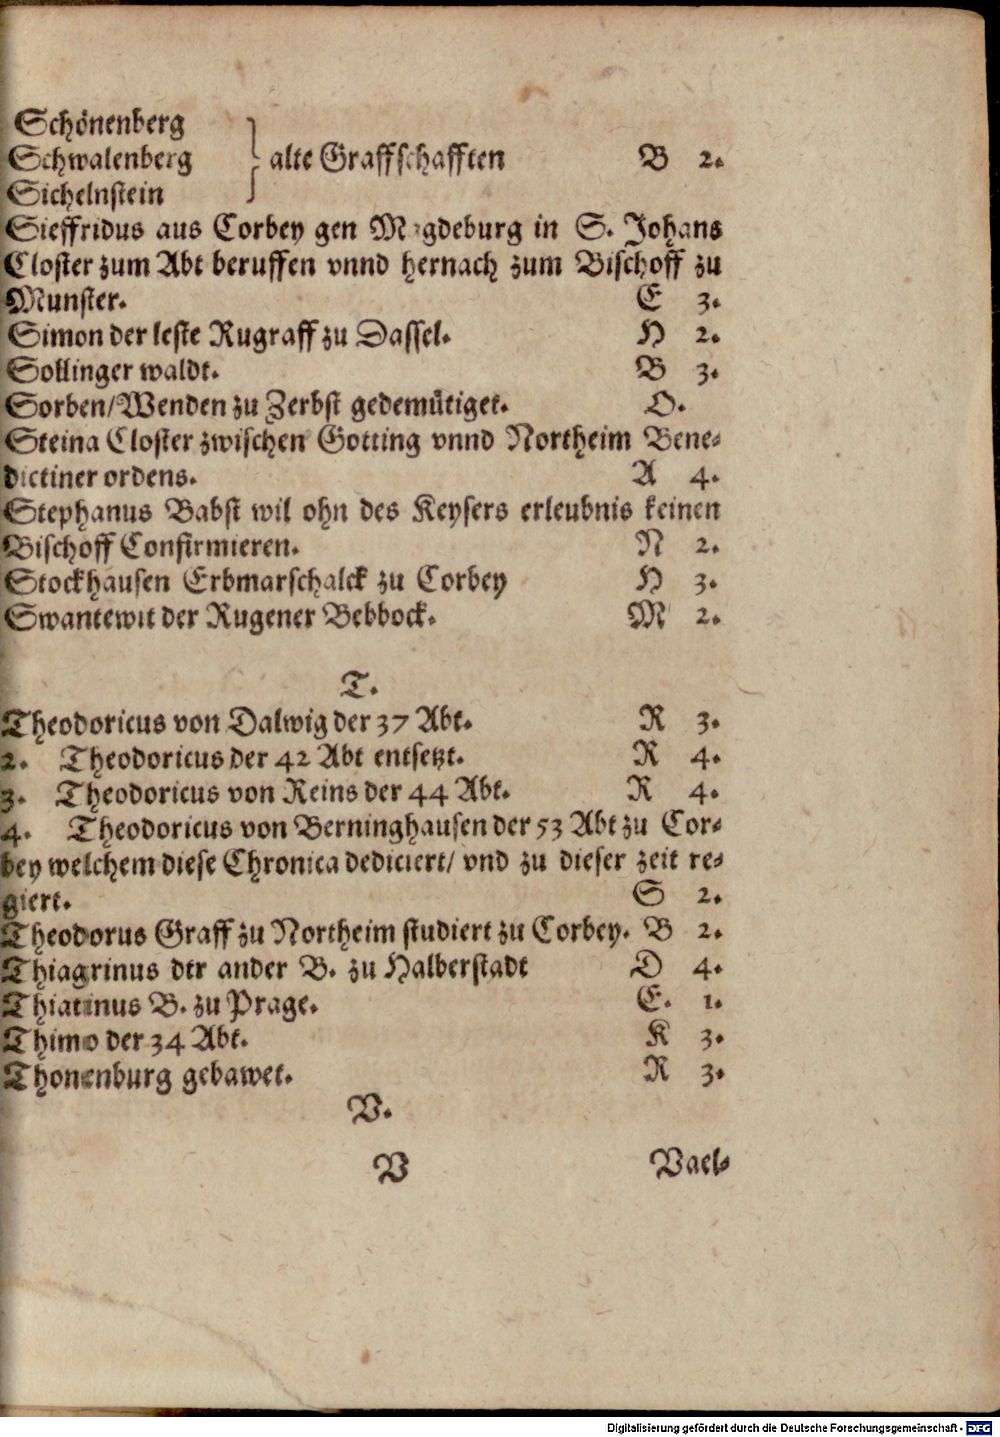 Schönenberg
Schwalenberg } alte Graffschafften B 2.
Sichelnstein
Sieffridus aus Corbey gen Magdeburg in S. Johans
Closter zum Abt beruffen vnnd hernach zum Bischoff zu
Munster. E 3.
Simon der leste Rugraff zu Dassel. H 2.
Sollinger waldt. B 3.
Sorben/Wenden zu Zerbst gedemütiget. O.
Steina Closter zwischen Gotting vnnd Northeim Bene-
dictiner ordens. A 4.
Stephanus Babst wil ohn des Keysers erleubnis keinen
Bischoff Confirmieren. N 2.
Stockhausen Erbmarschalck zu Corbey H 3.
Swantewit der Rugener Bebbock. M 2.
T.
Theodoricus von Dalwig der 37 Abt. R 3.
2. Theodoricus der 42 Abt entsetzt. R 4.
3. Theodoricus von Reins der 44 Abt. R 4.
4. Theodoricus von Berninghausen der 53 Abt zu Cor-
bey welchem diese Chronica dediciert/ vnd zu dieser zeit re-
giert. S 2.
Theodorus Graff zu Northeim studiert zu Corbey. B 2.
Thiagrinus der ander B. zu Halberstadt D 4.
Thiatinus B. zu Prage. E. 1.
Thimo der 34 Abt. K 3.
Thonenburg gebawet. R 3.
V.
V Vael-
Digitalisierung gefördert durch die Deutsche Forschungsgemeinschaft - DFG